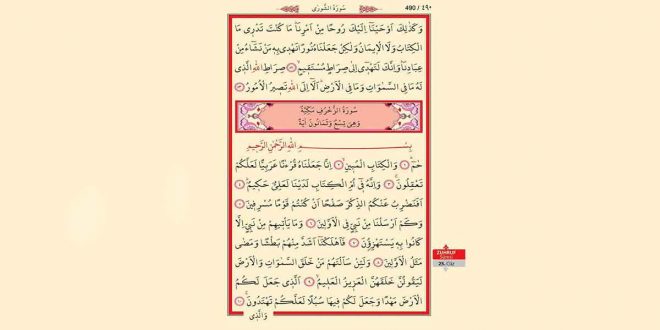 سُورَةُ الشُّورٰى
490 / ٤٩٠
وَكَذٰلِكَ اَوْحَيْنَٓا اِلَيْكَ رُوحًا مِنْ اَمْرِنَاۜ مَا كُنْتَ تَدْر۪ي مَا
الْكِتَابُ وَلَا الْا۪يمَانُ وَلٰكِنْ جَعَلْنَاهُ نُورًا نَهْد۪ي بِه۪ مَنْ نَشَٓاءُ مِنْ
عِبَادِنَاۜ وَاِنَّكَ لَتَهْد۪ٓي اِلٰى صِرَاطٍ مُسْتَق۪يمٍۙ ﴿٥٢﴾ صِرَاطِ اللّٰهِ الَّذ۪ي
لَهُ مَا فِي السَّمٰوَاتِ وَمَا فِي الْاَرْضِۜ اَلَٓا اِلَى اللّٰهِ تَص۪يرُ الْاُمُورُ ﴿٥٣﴾
سُورَةُ الزُّخْرُفِ مَكِّيَّةٌ
وَهِيَ تِسْعٌ وَثَمَانُونَ اٰيَةً
بِسْمِ اللّٰهِ الرَّحْمٰنِ الرَّح۪يمِ
حٰمٓۜ ﴿١﴾ وَالْكِتَابِ الْمُب۪ينِۙ ﴿٢﴾ اِنَّا جَعَلْنَاهُ قُرْءٰنًا عَرَبِيًّا لَعَلَّكُمْ
تَعْقِلُونَۚ ﴿٣﴾ وَاِنَّهُ ف۪ٓي اُمِّ الْكِتَابِ لَدَيْنَا لَعَلِيٌّ حَك۪يمٌۜ ﴿٤﴾
اَفَنَضْرِبُ عَنْكُمُ الذِّكْرَ صَفْحًا اَنْ كُنْتُمْ قَوْمًا مُسْرِف۪ينَ ﴿٥﴾
وَكَمْ اَرْسَلْنَا مِنْ نَبِيٍّ فِي الْاَوَّل۪ينَ ﴿٦﴾ وَمَا يَأْت۪يهِمْ مِنْ نَبِيٍّ اِلَّا
كَانُوا بِه۪ يَسْتَهْزِؤُ۫نَ ﴿٧﴾ فَاَهْلَكْنَٓا اَشَدَّ مِنْهُمْ بَطْشًا وَمَضٰى
مَثَلُ الْاَوَّل۪ينَ ﴿٨﴾ وَلَئِنْ سَاَلْتَهُمْ مَنْ خَلَقَ السَّمٰوَاتِ وَالْاَرْضَ
لَيَقُولُنَّ خَلَقَهُنَّ الْعَز۪يزُ الْعَل۪يمُۙ ﴿٩﴾ اَلَّذ۪ي جَعَلَ لَكُمُ
الْاَرْضَ مَهْدًا وَجَعَلَ لَكُمْ ف۪يهَا سُبُلًا لَعَلَّكُمْ تَهْتَدُونَۚ ﴿١٠﴾
وَالَّذ۪ي
ZUHRUF
Sûresi
25. Cüz